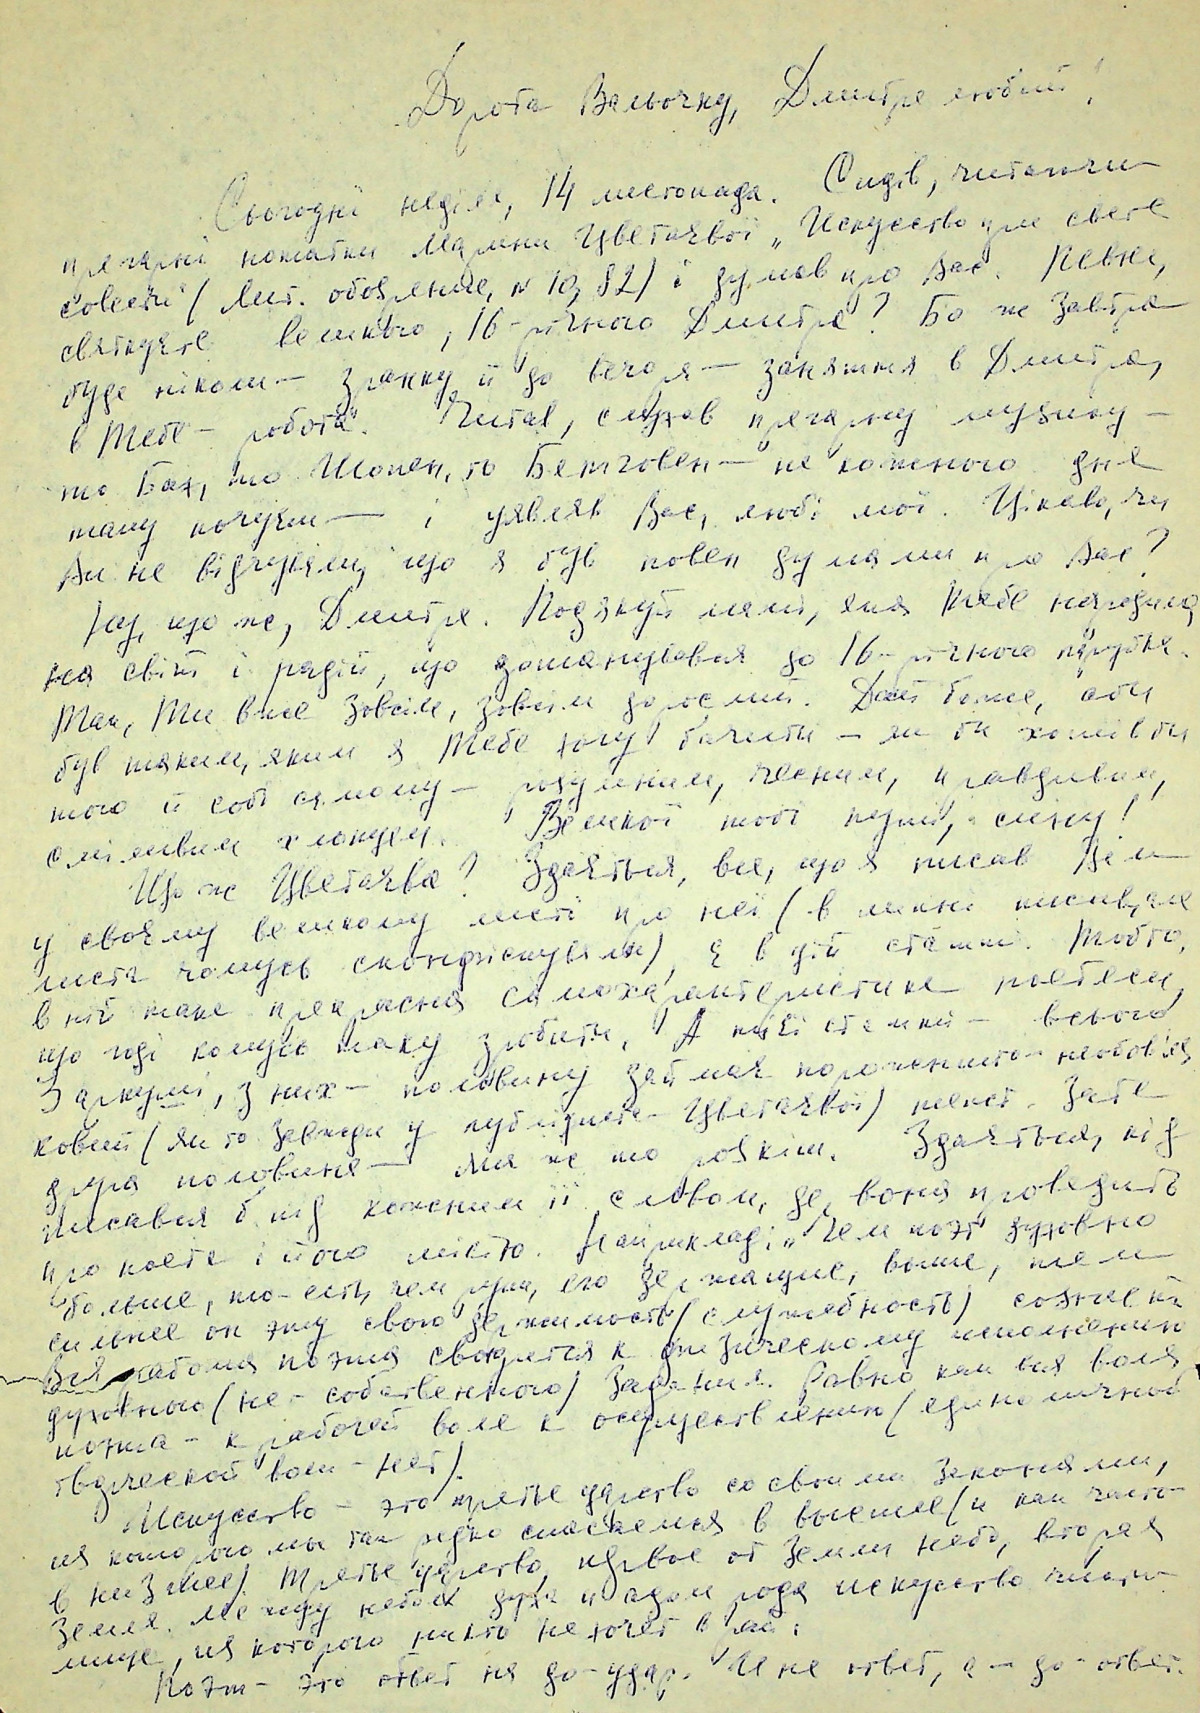 Дорога Вальочку, Дмитре любий!
Сьогодні неділя, 14 листопада. Сидів, читаючи
прегарні нотатки Марини Цвєтаєвої „Искусство при свете
совести" (Лит. обозрение, № 10, 82) і думав про Вас. Певне,
святкуєте великого, 16-річного Дмитра? Бо ж завтра
буде ніколи — зранку й до вечора — заняття в Дмитра,
в Тебе — робота. Читав, слухав прегарну музику —
то Бах, то Шопен, то Бетговен — не кожного дня
таку почуєш — і уявляв Вас, любі мої. Цікаво, чи
Ви не відчували, що я був повен думами про Вас?
Ну, що ж, Дмитре. Подякуй мамі, яка Тебе народила
на світ і радій, що домандрувався до 16-річного парубка.
Так, Ти вже зовсім, зовсім дорослий. Дай Боже, аби
був таким, яким я Тебе хочу бачити — як би хотів би
того й собі самому — розумним, чесним, правдивим,
сміливим хлопцем. Великої тобі путі, сину!
Що ж Цвєтаєва? Здається, все, що я писав Вам
у своєму великому листі про неї (в липні писав, але
листа чомусь сконфіскували), є в цій статті. Тобто,
в ній така прекрасна самохарактеристика поетеси,
що годі комусь таку зробити. А тієї статті — всього
3 аркуші, з них — половину займає порожнисто-необов'яз-
ковий (як то завжди у публіциста Цвєтаєвої) текст. Зате
друга половина — Ах же то розкіш. Здається, під-
писався б під кожним її словом, де вона провадить
про поета і його місію. Наприклад: „Чем поэт духовно
больше, то-есть, чем рука, его держащая, выше, тем
сильнее он эту свою держимость (служебность) сознает.
Вся работа поэта сводится к физическому исполнению
духовного (не-собственного) задания. Равно как вся воля
поэта — к рабочей воле к осуществлению (единоличной
творческой воли — нет).
Искусство — это третье царство со своими законами,
из которого мы так редко спасаемся в высшее (и как часто —
в низшее). Третье царство, первое от земли небо, вторая
земля. Между небом духа и адом рода искусство чисти-
лище, из которого никто не хочет в рай.
Поэт — это ответ на до-удар. И не ответ, а — до-ответ.